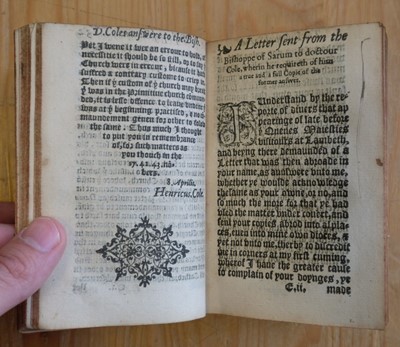 D. Coles answere to the Bish.
Yet I wene it wer an errour to hold, of
necessitie it should be so still, or to say the
Church were in errour, because it hath
suffred a contrary custome to creep in.
Then if ẏ custom of ẏ church may
ẏ was in the primitiue church
ded, it is lesse offence to leaue
was at ẏ beginning practised,
maundement geuen for other to
the same. Thus much I thought
to put you in remembraunce
of, for such matters as
you touch in the
17. 42. 43.
bers.
8. Aprilis.
Henricus. Cole.
A Letter sent from the
Bishoppe of Sarum to doctour
Cole, wherin he requireth of him
a true and a full Copie of the
former answere.
I Understand by the re-
porte of diuers that ap
pearinge of late before ẏ
Queenes Maiesties
visitours at Lambeth,
and being there demaunded of a
Letter that was then abroade in
your name, as answere vnto me,
whether ye would acknowledge
the same as your owne, or no, and
so much the more for that ye had
vsed the matter vnder couert, and
sent your copies abrod into al pla-
ces, euen into mine own dioces, &
yet not vnto me, therby to discredit
me in corners at my first cuming,
wherof I haue the greater cause
to complain of your doynges, ye
E.ii. made